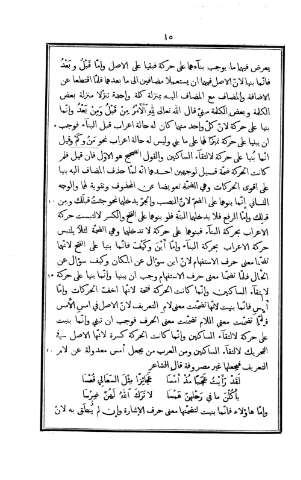 ١٥
يعرض فيهما ما يوجب بناءهما على حركة فبقيا على الاصل وإمّا قَبْلُ وبَعْدُ
فانّما بنيا لانّ الاصل فيهما ان يستعملا مضافين الى ما بعدهما فلمّا اقتطعا عن
الاضافة والمضاف مع المضاف اليه بمنزلة كلمة واحدة تنزّلا منزلة بعض
الكلمة وبعض الكلمة مبنيّ قال الله تعالى لِلَّهِ ٱلْأَمْرُ مِنْ قَبْلُ وَمِنْ بَعْدُ وانّما
بنيا على حركة لانّ كلّ واحد منهما كان له حالة اعراب قبل البناء فوجب
ان يبنيا على حركة تمييزا لهما على ما بنى وليس له حالة اعراب نحو مَنْ وكَمْ وقيل
انّما بنيا على حركة لالتقاء الساكنين والقول الصحيح هو الاوّل فان قيل فلِم
كانت الحركة ضمّة قيل لوجهين احدهما انّه لمّا حذف المضاف اليه بنيا
على اقوى الحركات وهى الضمّة تعويضا عن المحذوف وتقوية لهما والوجه
الثانى انّما بنوهما على الضمّ لانّ النصب والجرّ يدخلهما نحو جئت قَبْلَك ومن
قبلِك وامّا الرفع فلا يدخلهما البتّة فلو بنوهما على الفتح والكسر لالتبست حركة
الاعراب بحركة البناء فبنوهما على حركة لا تدخلهما وهى الضمّة لئلّا يلتبس
حركة الاعراب بحركة البناء وإمّا أَيْنَ وكَيْفَ فانّما بنيا على الفتح لانّهما
تضمّنا معنى حرف الاستفهام لانّ اين سؤال عن المكان وكيف سؤال عن
الحال فلمّا تضمّنا معنى حرف الاستفهام وجب ان يبنيا وانّما بنيا على حركة
لالتقاء الساكنين وإنّما كانت الحركة فتحة لانّها اخفّ الحركات وامّا
أمسِ فانّما بنيت لانّها تضمّنت معنى لام التعريف لانّ الاصل فى امسِ الأمس
فلمّا تضمّنت معنى اللام تضمّنت معنى الحرف فوجب ان تبنى وإنّما بنيت
على حركة لالتقاء الساكنين وانّما كانت الحركة كسرة لانّها الاصل فى
التحريك لالتقاء الساكنين ومن العرب من يجعل أمس معدولة عن لام
التعريف فيجعلها غير مصروفة قال الشاعر
لَقَدْ رَأَيْتُ عَجَبًا مُذْ أَمْسَا عَجَائِزًا مِثْلَ ٱلسَّعَالِي خَمْسَا
يَأْكُلْنَ مَا فِي رَحْلِهِنَّ هَمْسَا لَا تَرَكَ ٱللَّهُ لَهُنَّ ضِرْسَا
وإمّا هاؤُلاءِ فانّما بنيت لتضمّنها معنى حرف الإشارة وإن لم يُنْطَق به لانّ